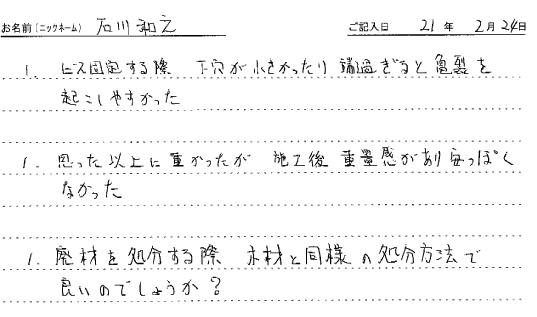 お名前(ニックネーム) 石川 和之 ご記入日 21年 2月24日
1. ビス固定する際 下穴が小さかったり 端過ぎると亀裂を
起こしやすかった
1. 思った以上に重かったが 施工後 重量感があり安っぽく
なかった
1. 廃材を処分する際 木材と同様の処分方法で
良いのでしょうか?